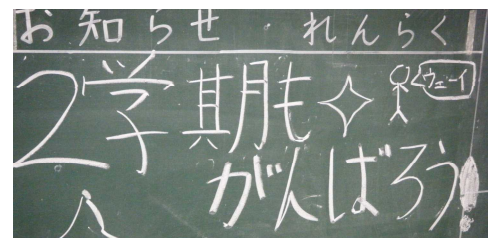 お知らせ・れんらく
2学期も
ウェーイ
がんばろう